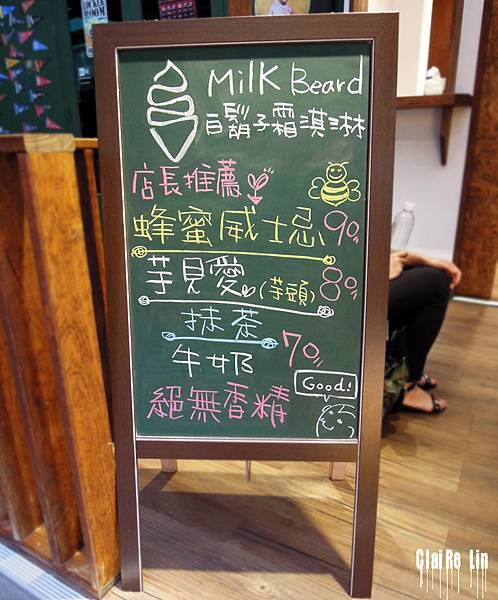 Milk Beard
白鬍子霜淇淋
店長推薦
蜂蜜威士忌 90
芋見愛 (芋頭) 80
抹茶
牛奶 70
Good!
絕無香精
ClaiRe Lin